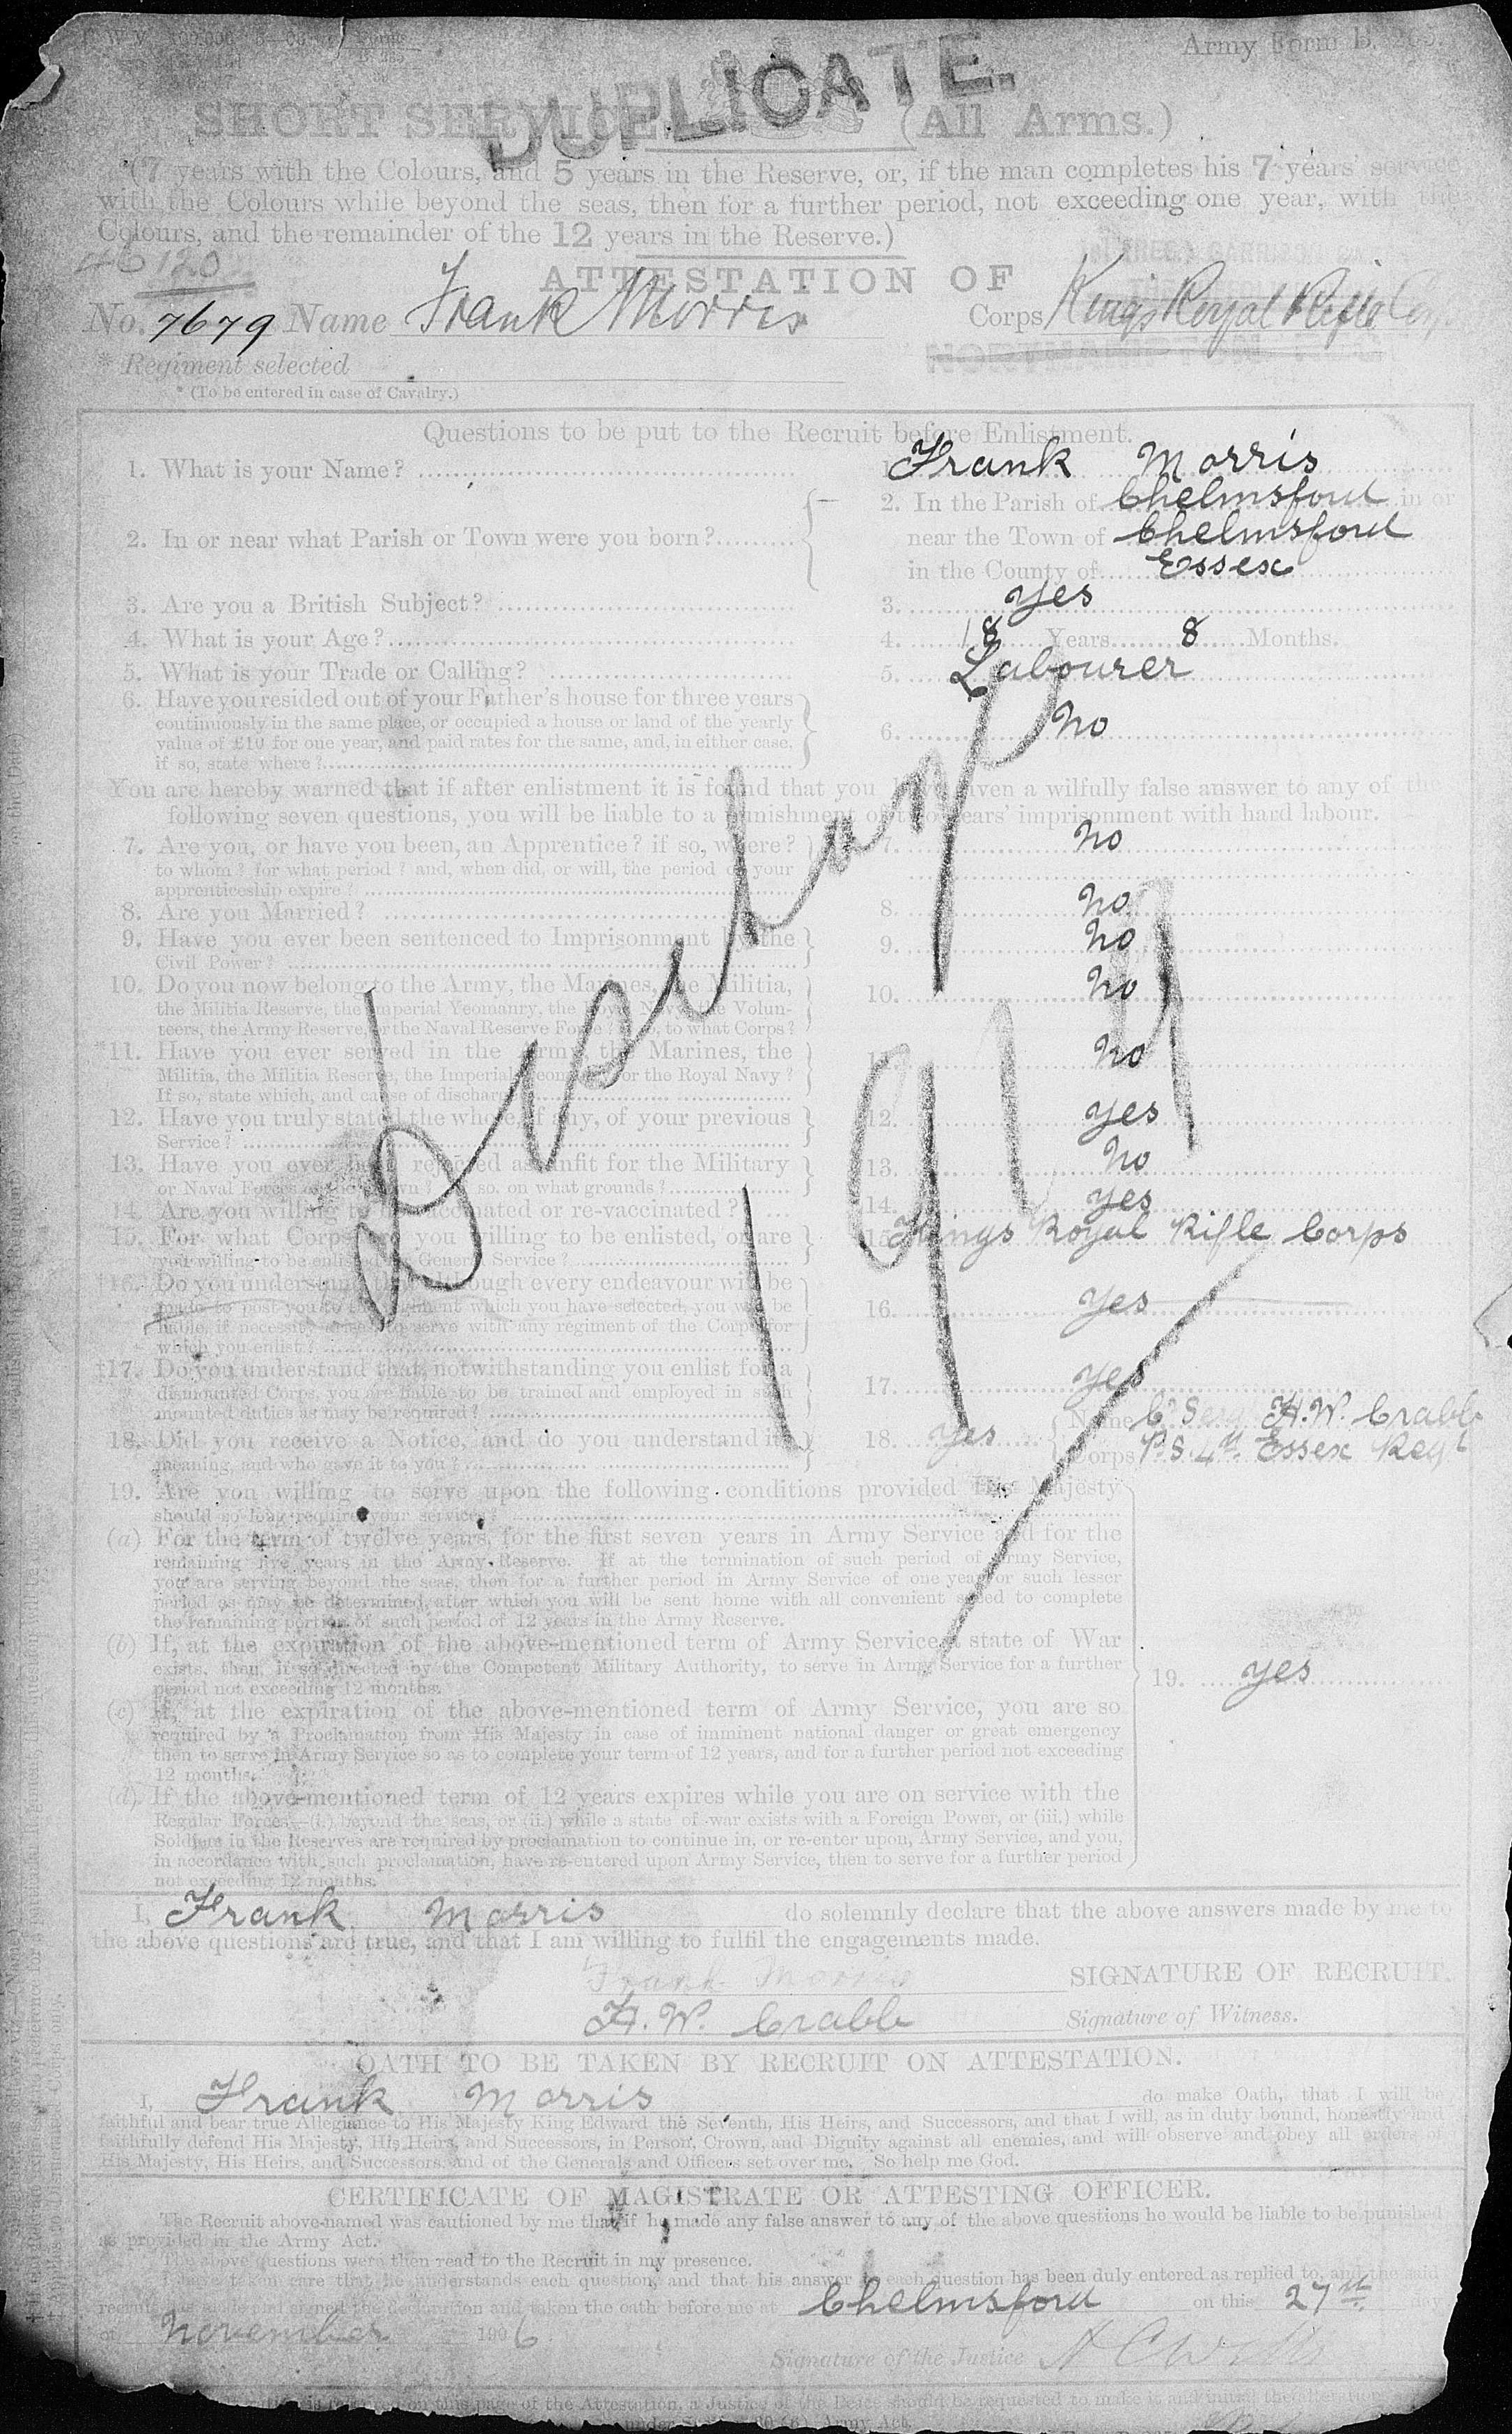 Army Form B. 265.
DUPLICATE.
SHORT SERVICE. (All Arms.)
(7 years with the Colours, and 5 years in the Reserve, or, if the man completes his 7 years' service
with the Colours while beyond the seas, then for a further period, not exceeding one year, with the
Colours, and the remainder of the 12 years in the Reserve.)
46120
ATTESTATION OF
No. 7679 Name Frank Morris Corps King's Royal Rifle Corps
NORTHAMPTON REG
* Regiment selected
* (To be entered in case of Cavalry.)
Questions to be put to the Recruit before Enlistment.
1. What is your Name? 1. Frank Morris
2. In or near what Parish or Town were you born? 2. In the Parish of Chelmsford in or
near the Town of Chelmsford
in the County of Essex
3. Are you a British Subject? 3. Yes
4. What is your Age? 4. 18 Years 8 Months.
5. What is your Trade or Calling? 5. Labourer
6. Have you resided out of your Father's house for three years
continuously in the same place, or occupied a house or land of the yearly
value of £10 for one year, and paid rates for the same, and, in either case,
if so, state where? 6. No
You are hereby warned that if after enlistment it is found that you have given a wilfully false answer to any of the
following seven questions, you will be liable to a punishment of two years' imprisonment with hard labour.
7. Are you, or have you been, an Apprentice? if so, where? 7. No
to whom? for what period? and, when did, or will, the period of your
apprenticeship expire?
8. Are you Married? 8. No
9. Have you ever been sentenced to Imprisonment by the
Civil Power? 9. No
10. Do you now belong to the Army, the Marines, the Militia,
the Militia Reserve, the Imperial Yeomanry, the Royal Navy, the Volun-
teers, the Army Reserve, or the Naval Reserve Force? If so, to what Corps? 10. No
*11. Have you ever served in the Army, the Marines, the
Militia, the Militia Reserve, the Imperial Yeomanry or the Royal Navy?
If so, state which, and cause of discharge 11. No
12. Have you truly stated the whole, if any, of your previous
Service? 12. Yes
13. Have you ever been rejected as unfit for the Military
or Naval Forces of the Crown? If so, on what grounds? 13. No
14. Are you willing to be vaccinated or re-vaccinated? 14. Yes
15. For what Corps are you willing to be enlisted, or are
you willing to be enlisted for General Service? 15. Kings Royal Rifle Corps
†16. Do you understand that though every endeavour will be
made to post you to the regiment which you have selected, you will be
liable, if necessity arises, to serve with any regiment of the Corps for
which you enlist? 16. Yes
‡17. Do you understand that, notwithstanding you enlist for a
dismounted Corps, you are liable to be trained and employed in such
mounted duties as may be required? 17. Yes
18. Did you receive a Notice, and do you understand its
meaning, and who gave it to you? 18. Yes Name C. Serg H.W. Crabb
Corps P.S. 4th Essex Regt
19. Are you willing to serve upon the following conditions provided His Majesty
should so long require your services?
(a) For the term of twelve years, for the first seven years in Army Service and for the
remaining five years in the Army Reserve. If at the termination of such period of Army Service,
you are serving beyond the seas, then for a further period in Army Service of one year or such lesser
period as may be determined, after which you will be sent home with all convenient speed to complete
the remaining portion of such period of 12 years in the Army Reserve.
(b) If, at the expiration of the above-mentioned term of Army Service a state of War
exists, then, if so directed by the Competent Military Authority, to serve in Army Service for a further
period not exceeding 12 months. 19. Yes
(c) If, at the expiration of the above-mentioned term of Army Service, you are so
required by a Proclamation from His Majesty in case of imminent national danger or great emergency
then to serve in Army Service so as to complete your term of 12 years, and for a further period not exceeding
12 months.
(d) If the above-mentioned term of 12 years expires while you are on service with the
Regular Forces—(i.) beyond the seas, or (ii.) while a state of war exists with a Foreign Power, or (iii.) while
Soldiers in the Reserves are required by proclamation to continue in, or re-enter upon, Army Service, and you,
in accordance with such proclamation, have re-entered upon Army Service, then to serve for a further period
not exceeding 12 months.
1917
I, Frank Morris do solemnly declare that the above answers made by me to
the above questions are true, and that I am willing to fulfil the engagements made.
Frank Morris SIGNATURE OF RECRUIT.
H.W. Crabb Signature of Witness.
OATH TO BE TAKEN BY RECRUIT ON ATTESTATION.
I, Frank Morris do make Oath, that I will be
faithful and bear true Allegiance to His Majesty King Edward the Seventh, His Heirs, and Successors, and that I will, as in duty bound, honestly and
faithfully defend His Majesty, His Heirs, and Successors, in Person, Crown, and Dignity against all enemies, and will observe and obey all orders of
His Majesty, His Heirs, and Successors, and of the Generals and Officers set over me. So help me God.
CERTIFICATE OF MAGISTRATE OR ATTESTING OFFICER.
The Recruit above-named was cautioned by me that if he made any false answer to any of the above questions he would be liable to be punished
as provided in the Army Act.
The above questions were then read to the Recruit in my presence.
I have taken care that he understands each question, and that his answer to each question has been duly entered as replied to, and the said
recruit has made and signed the declaration and taken the oath before me at Chelmsford on this 27th day
of November 1906
Signature of the Justice